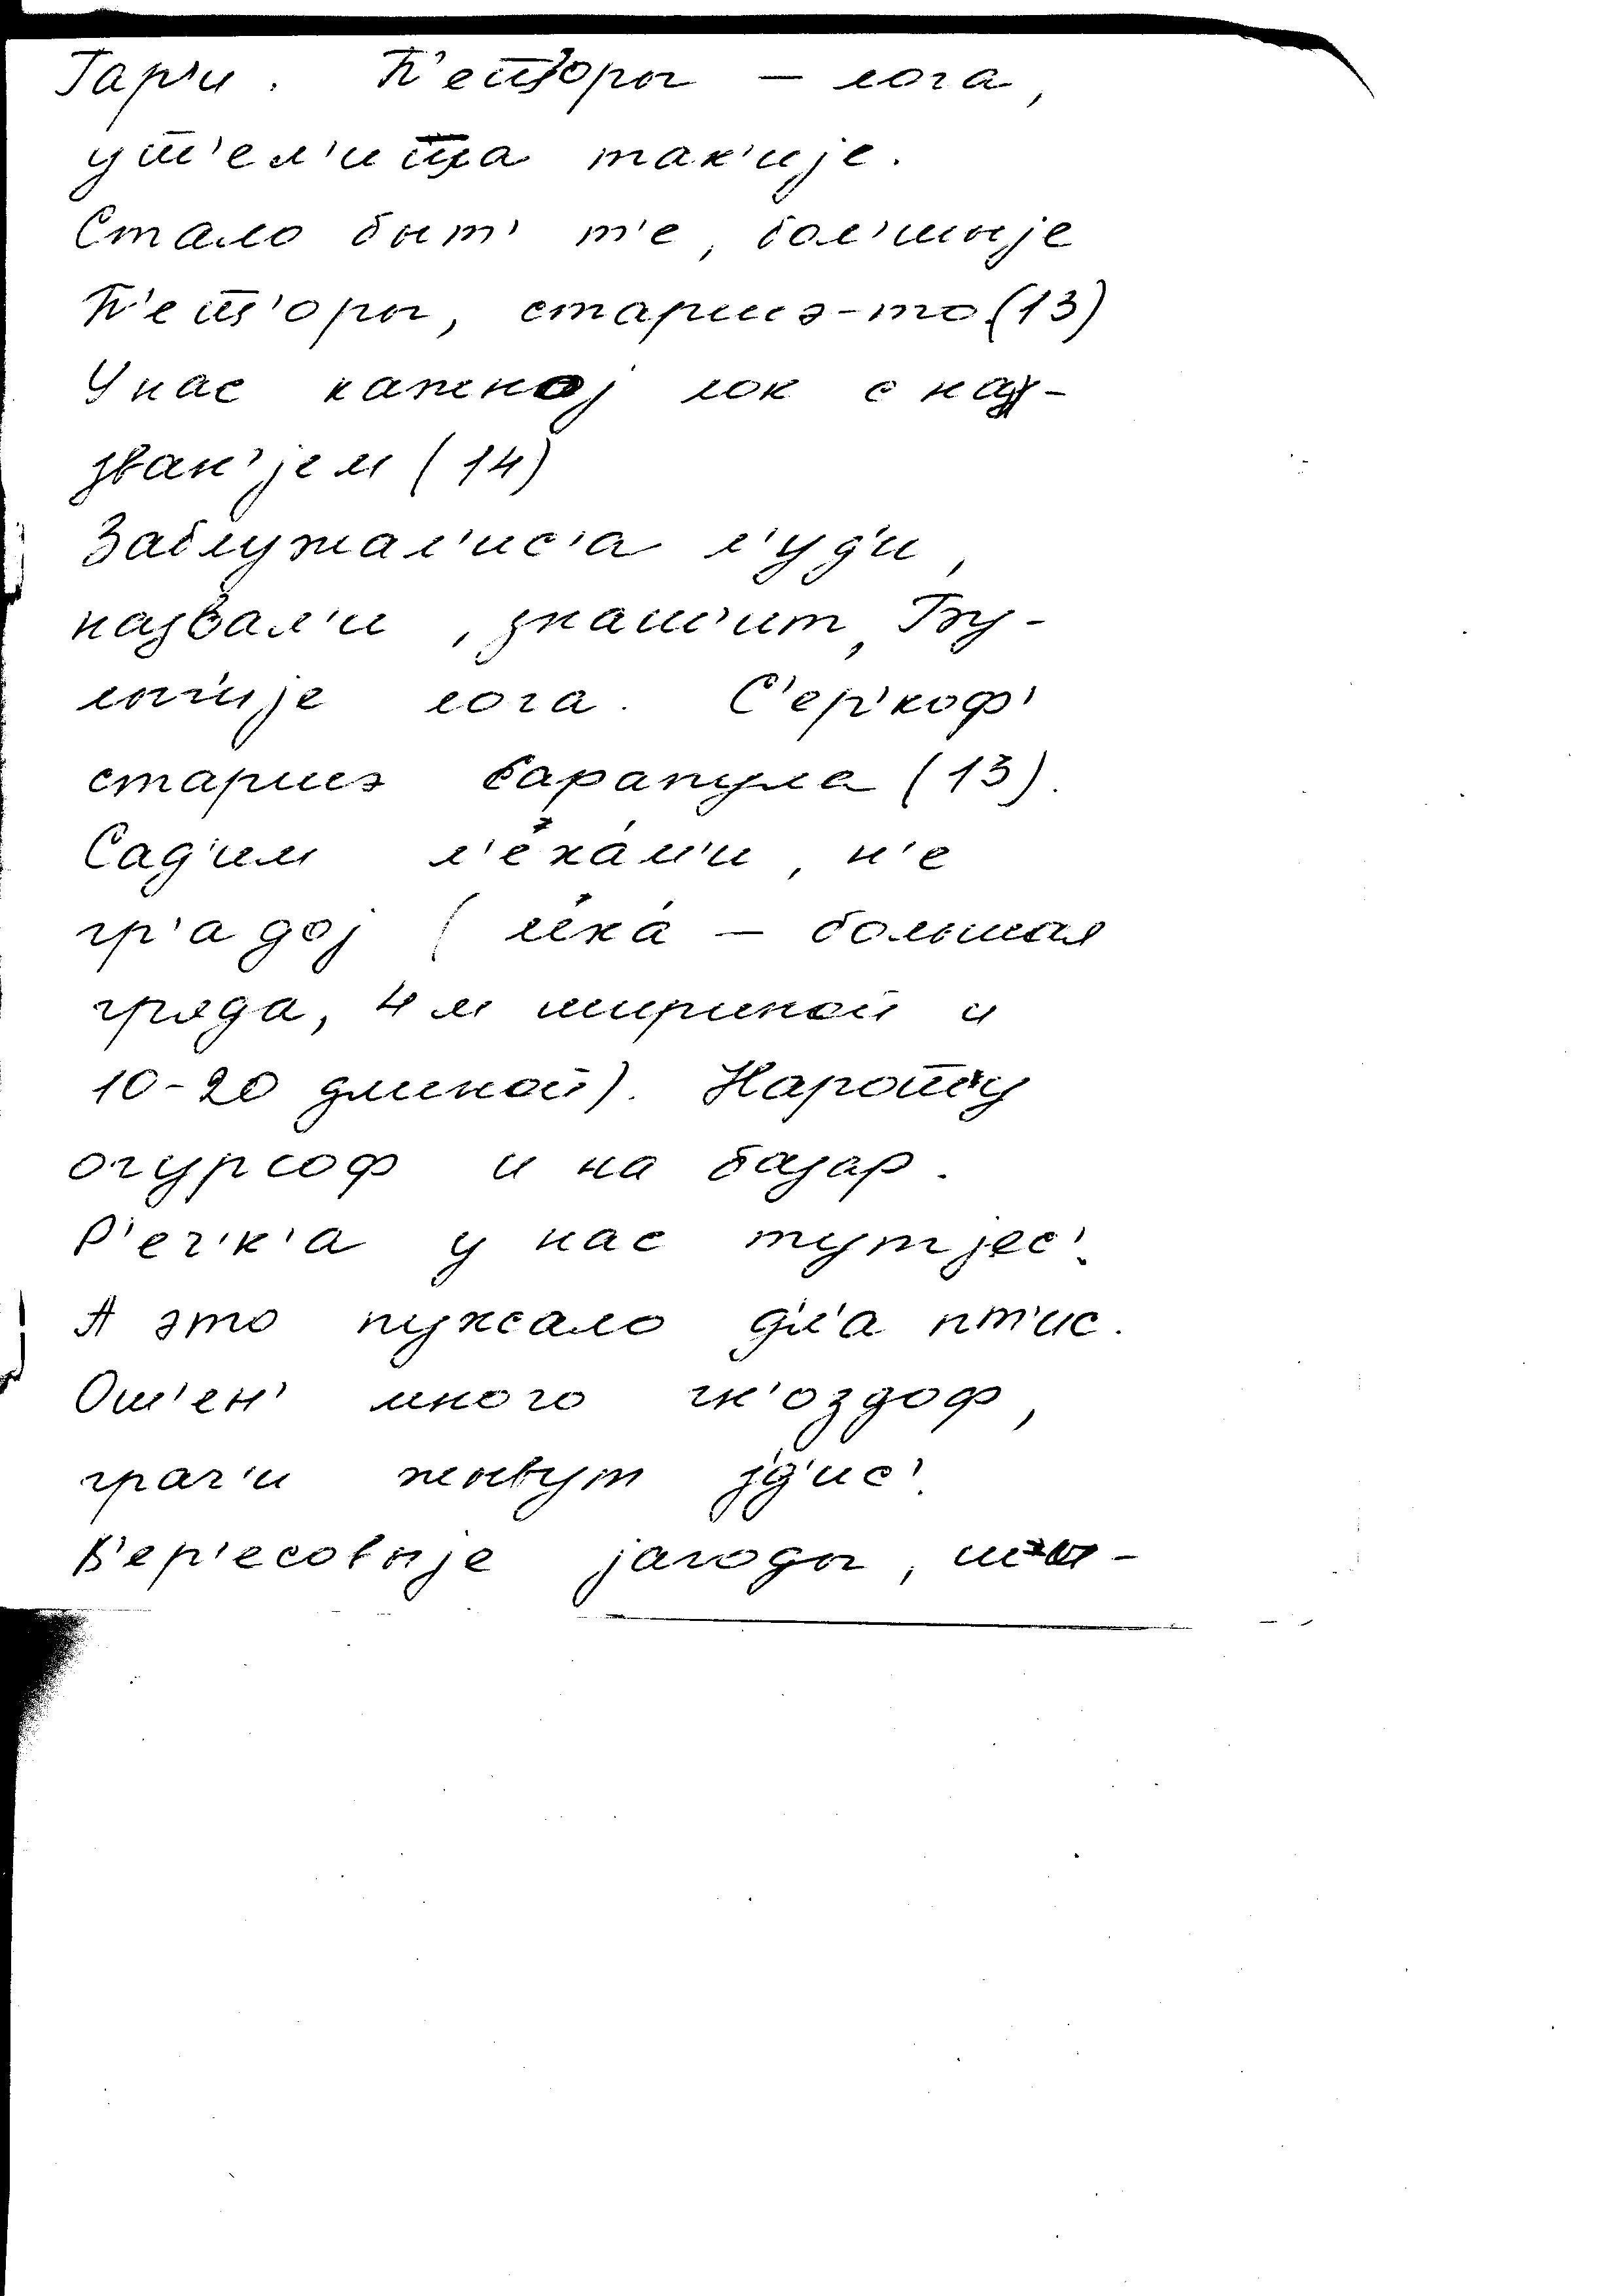 Гар'и. П'еш'оры — лога,
уш'ел'ишша так'иjе.
Стало быт' т'е, бол'шыjе
П'еш'оры, старшэ-то (13)
У нас кажноj лок с наз-
зван'jем (14)
Заблужал'ис'а л'уд'и,
назвал'и, знаш'ит, Бу-
лыг'иjе лога. С'ер'коф'
старшэ Сарапула (13).
Сад'им л'еха́м'и, н'е
гр'адоj (леха́ — большая
гряда, 4 м шириной и
10-20 длиной). Нарош'у
огурсоф и на базар.
Р'еч'к'а у нас тут jес'.
А это пужсало дл'а пт'ис.
Ош'ен' много гн'оздоф,
грач'и жывут з'д'ис'.
В'ер'есовыjе jагоды,